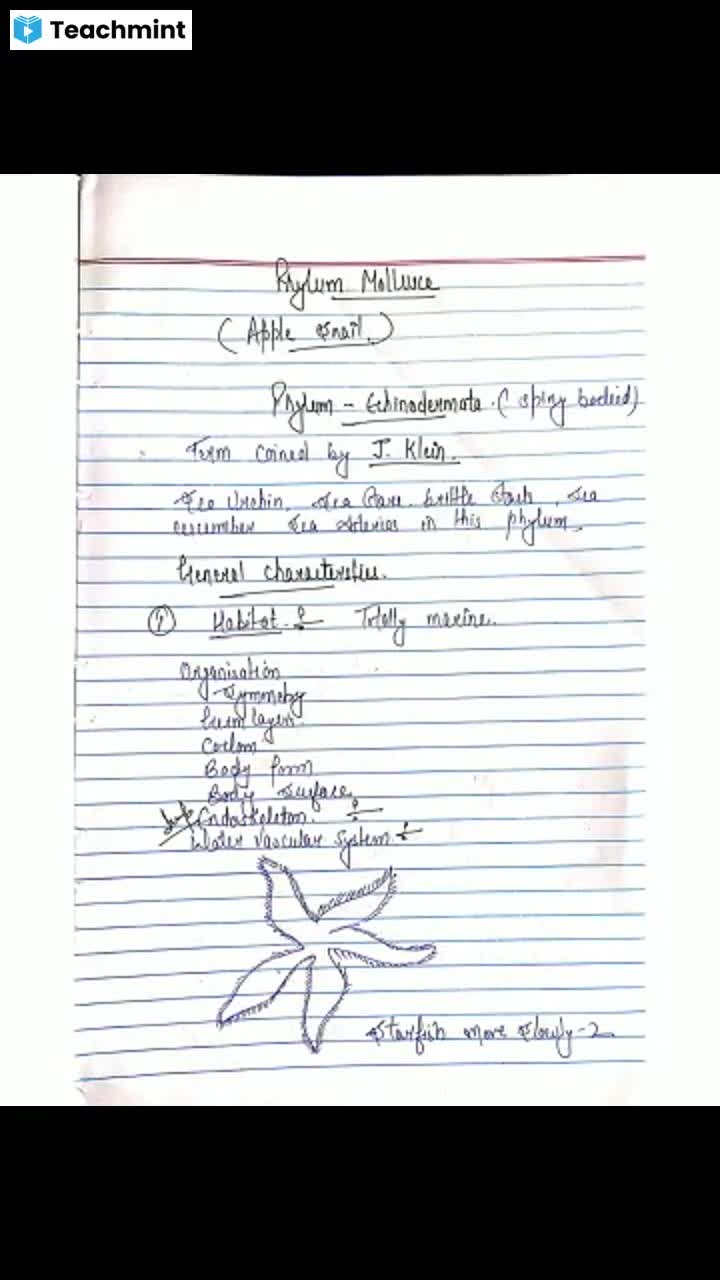 Teachmint
Phylum Mollusce
(Apple Snail.)
Phylum - Echinodermata. (spiny bodied)
Term coined by J. Klein.
Sea Urchin, Sea brittle Stars, Sea
cucumber Sea in this phylum.
General characteristics.
Habitat :- Totally marine.
Organisation
Symmetry
Germ layers
Coelom
Body form
Body Surface
Endoskeleton. :-
Water Vascular System :-
Starfish move Slowly - 2